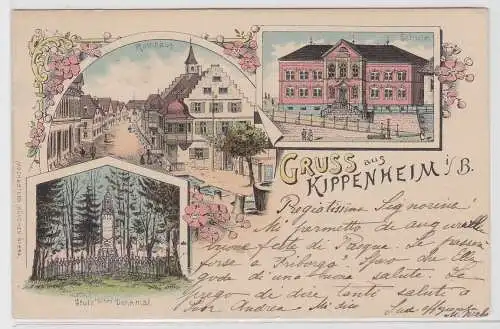 Rathhaus.
Schule.
GRUSS aus
KIPPENHEIM i/B.
Stulz'sches Denkmal.
Pregiatissima Signorina!
Mi permetto di augurarle
buone feste di Pasqua. Le passerà
forse a Friburgo? Spero che Ella
goda di una buona salute. La
prego di dire tanto saluto a
Sior Andrea Mi dico
Sua